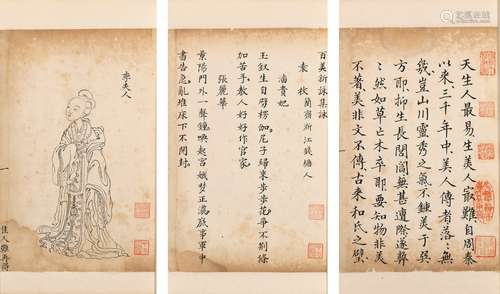 天生人最易生美人寂難自周秦
以來三千年中美人傳者落〻無
幾豈山川靈秀之氣不鍾美于巽
方耶抑生長閨閣無甚遭際遂
〻然如草亡木卒耶要知物非美
不著美非文不傳古來和氏之璧
百美新詠集詠
袁枚 簡齋浙江錢塘人
潘貴妃
玉奴生自劈輕伽尼子歸來步步花爭不荆條
加苦手教人好好作官家
張麗華
景陽門外一聲鐘喚起宮娥夢正濃底事軍中
書告急亂堆床下不開封
李夫人
佳人難再得